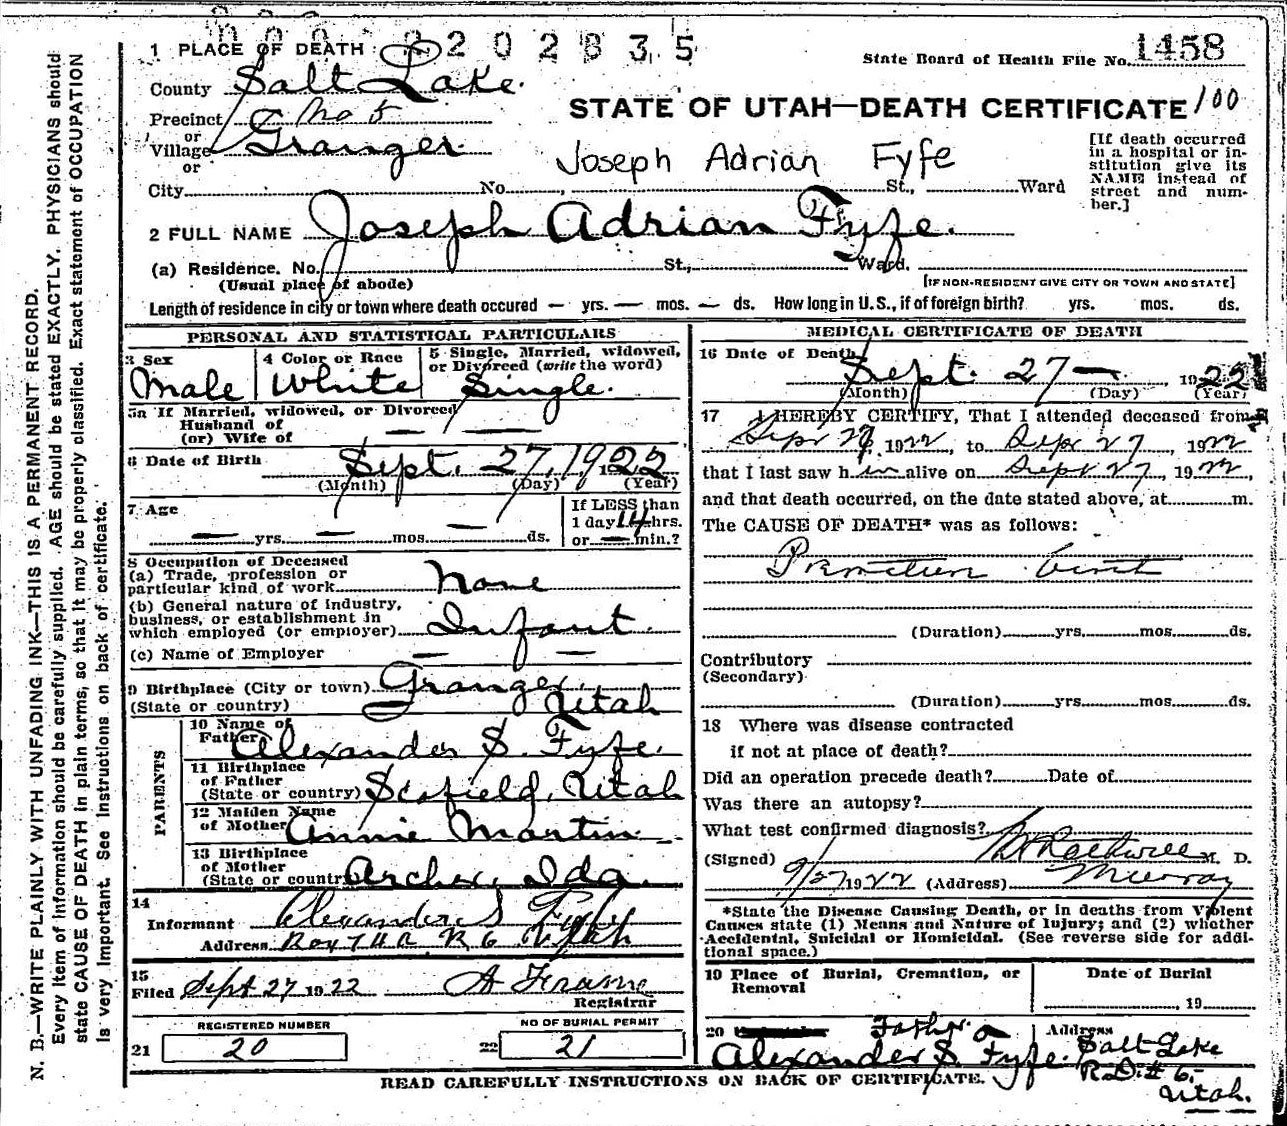 2202835
1 PLACE OF DEATH
State Board of Health File No. 1458
County Salt Lake.
STATE OF UTAH—DEATH CERTIFICATE 100
Precinct No 5
or
Village Granger
or
Joseph Adrian Fyfe
[If death occurred in a hospital or institution give its NAME instead of street and number.]
City No. St., Ward
2 FULL NAME Joseph Adrian Fyfe.
(a) Residence. No. St., Ward.
(Usual place of abode) [IF NON-RESIDENT GIVE CITY OR TOWN AND STATE]
Length of residence in city or town where death occured — yrs. — mos. — ds. How long in U.S., if of foreign birth? yrs. mos. ds.
PERSONAL AND STATISTICAL PARTICULARS
3 Sex
Male
4 Color or Race
White
5 Single, Married, widowed,
or Divorced (write the word)
Single.
5a If Married, widowed, or Divorced
Husband of
(or) Wife of — —
6 Date of Birth Sept. 27, 1922
(Month) (Day) (Year)
7 Age
— yrs. — mos. — ds.
If LESS than
1 day 14 hrs.
or — min.?
8 Occupation of Deceased
(a) Trade, profession or
particular kind of work None
(b) General nature of industry,
business, or establishment in
which employed (or employer) Infant.
(c) Name of Employer — —
9 Birthplace (City or town) Granger
(State or country) Utah
PARENTS
10 Name of
Father Alexander S. Fyfe.
11 Birthplace
of Father
(State or country) Scofield, Utah
12 Maiden Name
of Mother Annie Martin
13 Birthplace
of Mother
(State or country) Archer, Ida.
14
Informant Alexander S Fyfe
Address R 6 Utah
15
Filed Sept 27 1922 A Frame
Registrar
REGISTERED NUMBER
21 20
NO OF BURIAL PERMIT
22 21
MEDICAL CERTIFICATE OF DEATH
16 Date of Death
Sept. 27 — , 1922
(Month) (Day) (Year)
17 I HEREBY CERTIFY, That I attended deceased from
Sept 27, 1922, to Sept 27, 1922
that I last saw h im alive on Sept 27, 1922
and that death occurred, on the date stated above, at m.
The CAUSE OF DEATH* was as follows:
(Duration) yrs. mos. ds.
Contributory
(Secondary)
(Duration) yrs. mos. ds.
18 Where was disease contracted
if not at place of death?
Did an operation precede death? Date of
Was there an autopsy?
What test confirmed diagnosis?
(Signed) M. D.
9/27 1922 (Address) Murray
*State the Disease Causing Death, or in deaths from Violent
Causes state (1) Means and Nature of Injury; and (2) whether
Accidental, Suicidal or Homicidal. (See reverse side for addi-
tional space.)
19 Place of Burial, Cremation, or
Removal
Date of Burial
, 19
20 Father
Alexander S. Fyfe.
Address
Salt Lake
R.D. # 6.
Utah.
READ CAREFULLY INSTRUCTIONS ON BACK OF CERTIFICATE.
N. B.—WRITE PLAINLY WITH UNFADING INK—THIS IS A PERMANENT RECORD.
Every item of information should be carefully supplied. AGE should be stated EXACTLY. PHYSICIANS should
state CAUSE OF DEATH in plain terms, so that it may be properly classified. Exact statement of OCCUPATION
is very important. See instructions on back of certificate.